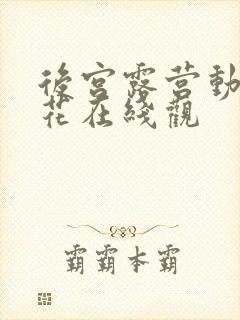 後宮露营動
花在綫觀
霸霸本霸